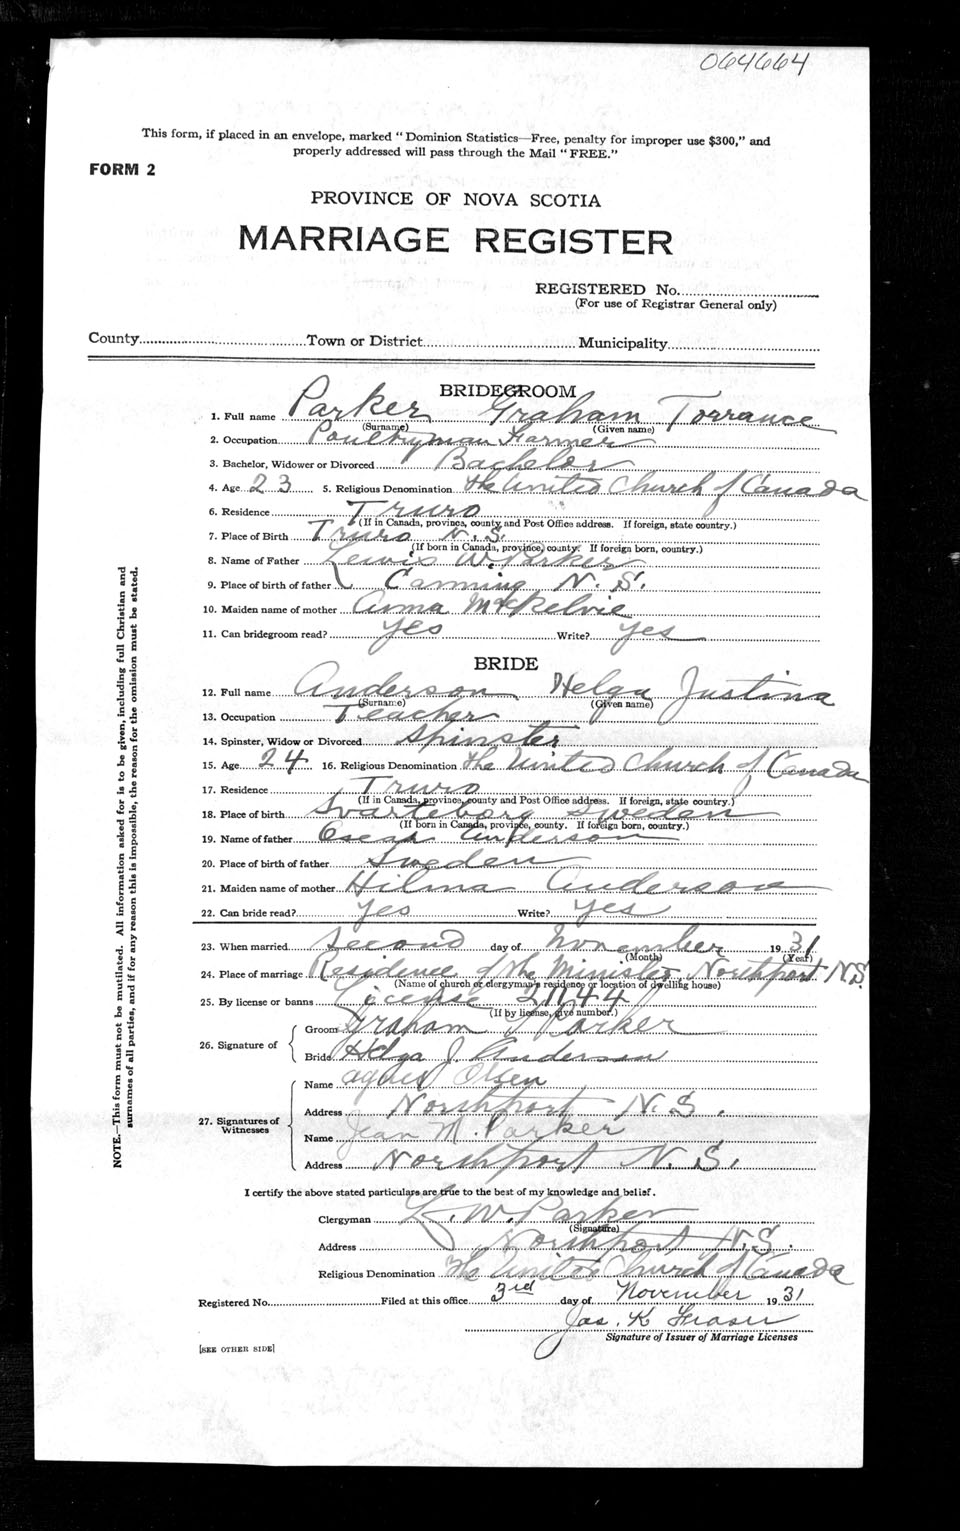 064664
This form, if placed in an envelope, marked "Dominion Statistics—Free, penalty for improper use $300," and
properly addressed will pass through the Mail "FREE."
FORM 2
PROVINCE OF NOVA SCOTIA
MARRIAGE REGISTER
REGISTERED No.
(For use of Registrar General only)
County Town or District Municipality
BRIDEGROOM
1. Full name Parker Graham Torrance
(Surname) (Given name)
2. Occupation Poultryman Farmer
3. Bachelor, Widower or Divorced Bachelor
4. Age 23 5. Religious Denomination The United Church of Canada
6. Residence Truro
(If in Canada, province, county and Post Office address. If foreign, state country.)
7. Place of Birth Truro N.S.
(If born in Canada, province, county. If foreign born, country.)
8. Name of Father Lewis W. Parker
9. Place of birth of father Canning N.S.
10. Maiden name of mother Anna McKelvie
11. Can bridegroom read? Yes Write? Yes
BRIDE
12. Full name Anderson Helga Justina
(Surname) (Given name)
13. Occupation Teacher
14. Spinster, Widow or Divorced Spinster
15. Age 24 16. Religious Denomination The United Church of Canada
17. Residence Truro
(If in Canada, province, county and Post Office address. If foreign, state country.)
18. Place of birth Svarteborg Sweden
(If born in Canada, province, county. If foreign born, country.)
19. Name of father Oscar Anderson
20. Place of birth of father Sweden
21. Maiden name of mother Hilma Anderson
22. Can bride read? Yes Write? Yes
23. When married Second day of November 1931
(Month) (Year)
24. Place of marriage Residence of the Minister, Northport N.S.
(Name of church or clergyman's residence or location of dwelling house)
25. By license or banns License 21144
(If by license, give number.)
26. Signature of Groom Graham T Parker
Bride Helga J. Anderson
27. Signatures of Witnesses
Name Agnes Olsen
Address Northport N.S.
Name Jean M. Parker
Address Northport N.S.
I certify the above stated particulars are true to the best of my knowledge and belief.
Clergyman L. W. Parker
(Signature)
Address Northport N.S.
Religious Denomination The United Church of Canada
Registered No. Filed at this office 3rd day of November 1931
Jas. K Fraser
Signature of Issuer of Marriage Licenses
[SEE OTHER SIDE]
NOTE.—This form must not be mutilated. All information asked for is to be given, including full Christian and
surnames of all parties, and if for any reason this is impossible, the reason for the omission must be stated.